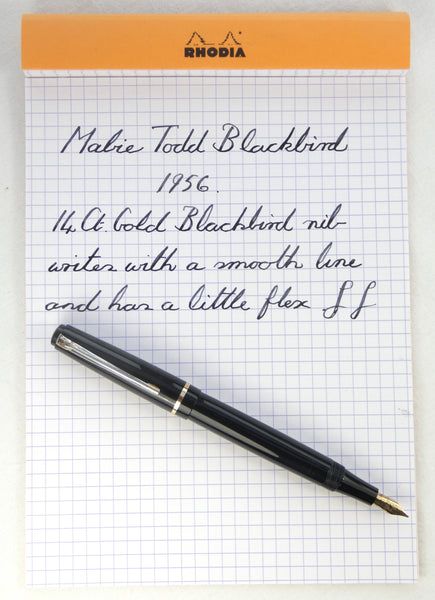 RHODIA
Mabie Todd Blackbird
1956.
14 Ct. Gold Blackbird nib
writes with a smooth line
and has a little flex f f